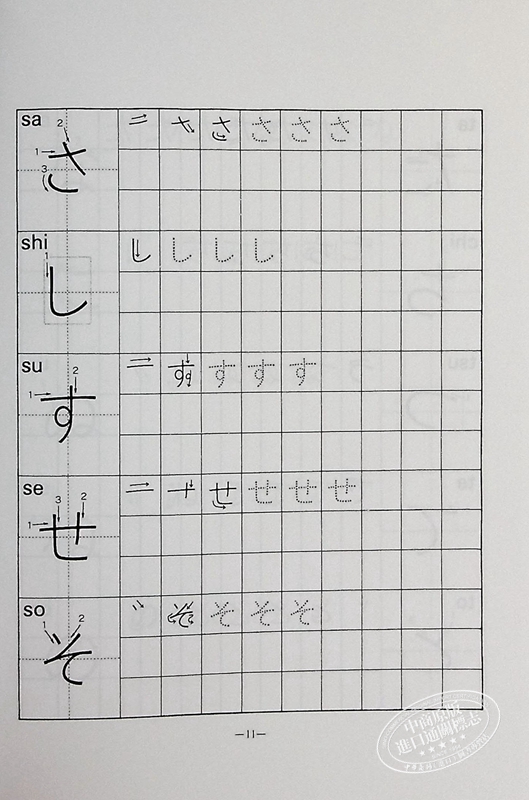 sa
1 2 3
さ さ さ さ さ
shi
1
し し し し し
su
1 2
す す す す す
se
1 2 3
せ せ せ せ せ
so
1 2
そ そ そ そ そ
—11—
中商原版
進口通關標志